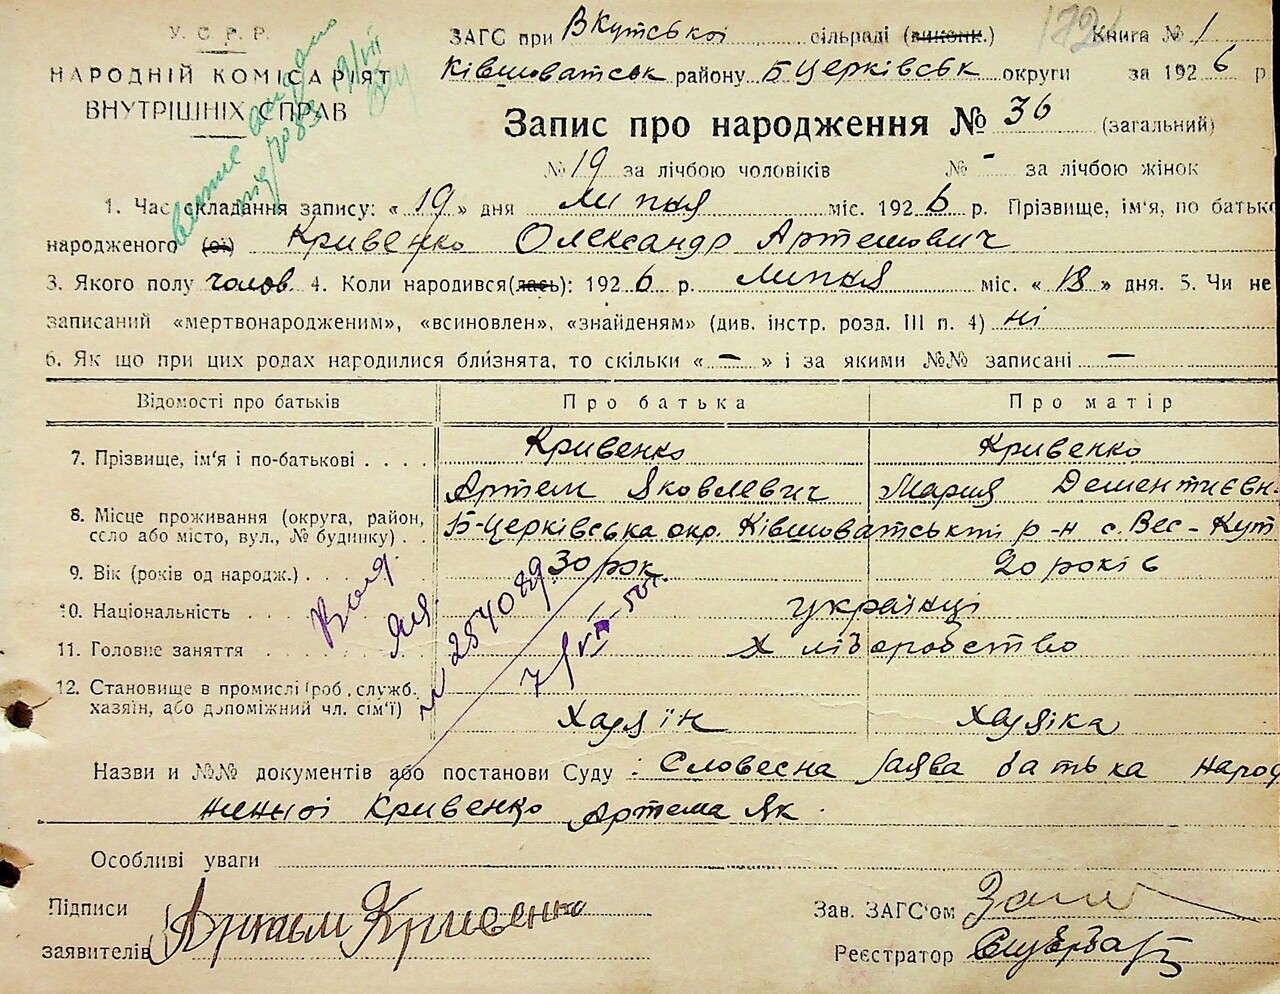 У. С. Р. Р.
НАРОДНІЙ КОМІСАРІЯТ
ВНУТРІШНІХ СПРАВ
ЗАГС при Вкутської сільраді (виконк.) Книга № 1
Ківшоватськ району Б Церківськ округи за 1926 р
Запис про народження № 36 (загальний)
№ 19 за лічбою чоловіків № - за лічбою жінок
1. Час складання запису: « 19 » дня липня міс. 1926 р. Прізвище, ім'я, по батько
народженого (ої) Кривенко Олександр Артемович
3. Якого полу чолов 4. Коли народився(лась): 1926 р. липня міс. « 18 » дня. 5. Чи не
записаний «мертвонародженим», «всиновлен», «знайденям» (див. інстр. розд. III п. 4) ні
6. Як що при цих родах народилися близнята, то скільки « — » і за якими №№ записані —
Відомості про батьків Про батька Про матір
7. Прізвище, ім'я і по-батькові . . . . Кривенко Кривенко
Артем Яковлевич Мария Дементиєвн-
8. Місце проживання (округа, район,
село або місто, вул., № будинку) . . Б-Церківська окр. Ківшоватські р-н с. Вес-Кут
9. Вік (років од народж.) . . . . 30 рок. 20 років
10. Національність . . . українці
11. Головне заняття . . . . . хліборобство
12. Становище в промислі (роб., служб.
хазяїн, або допоміжний чл. сім'ї) хазяїн хазяіка
Назви и №№ документів або постанови Суду : Словесна заява батька народ
женної Кривенко Артема Як.
Особливі уваги
Підписи
заявителів Артем Кривенко
Зав. ЗАГС'ом
Реєстратор
№ 254089
7/VII-50г.